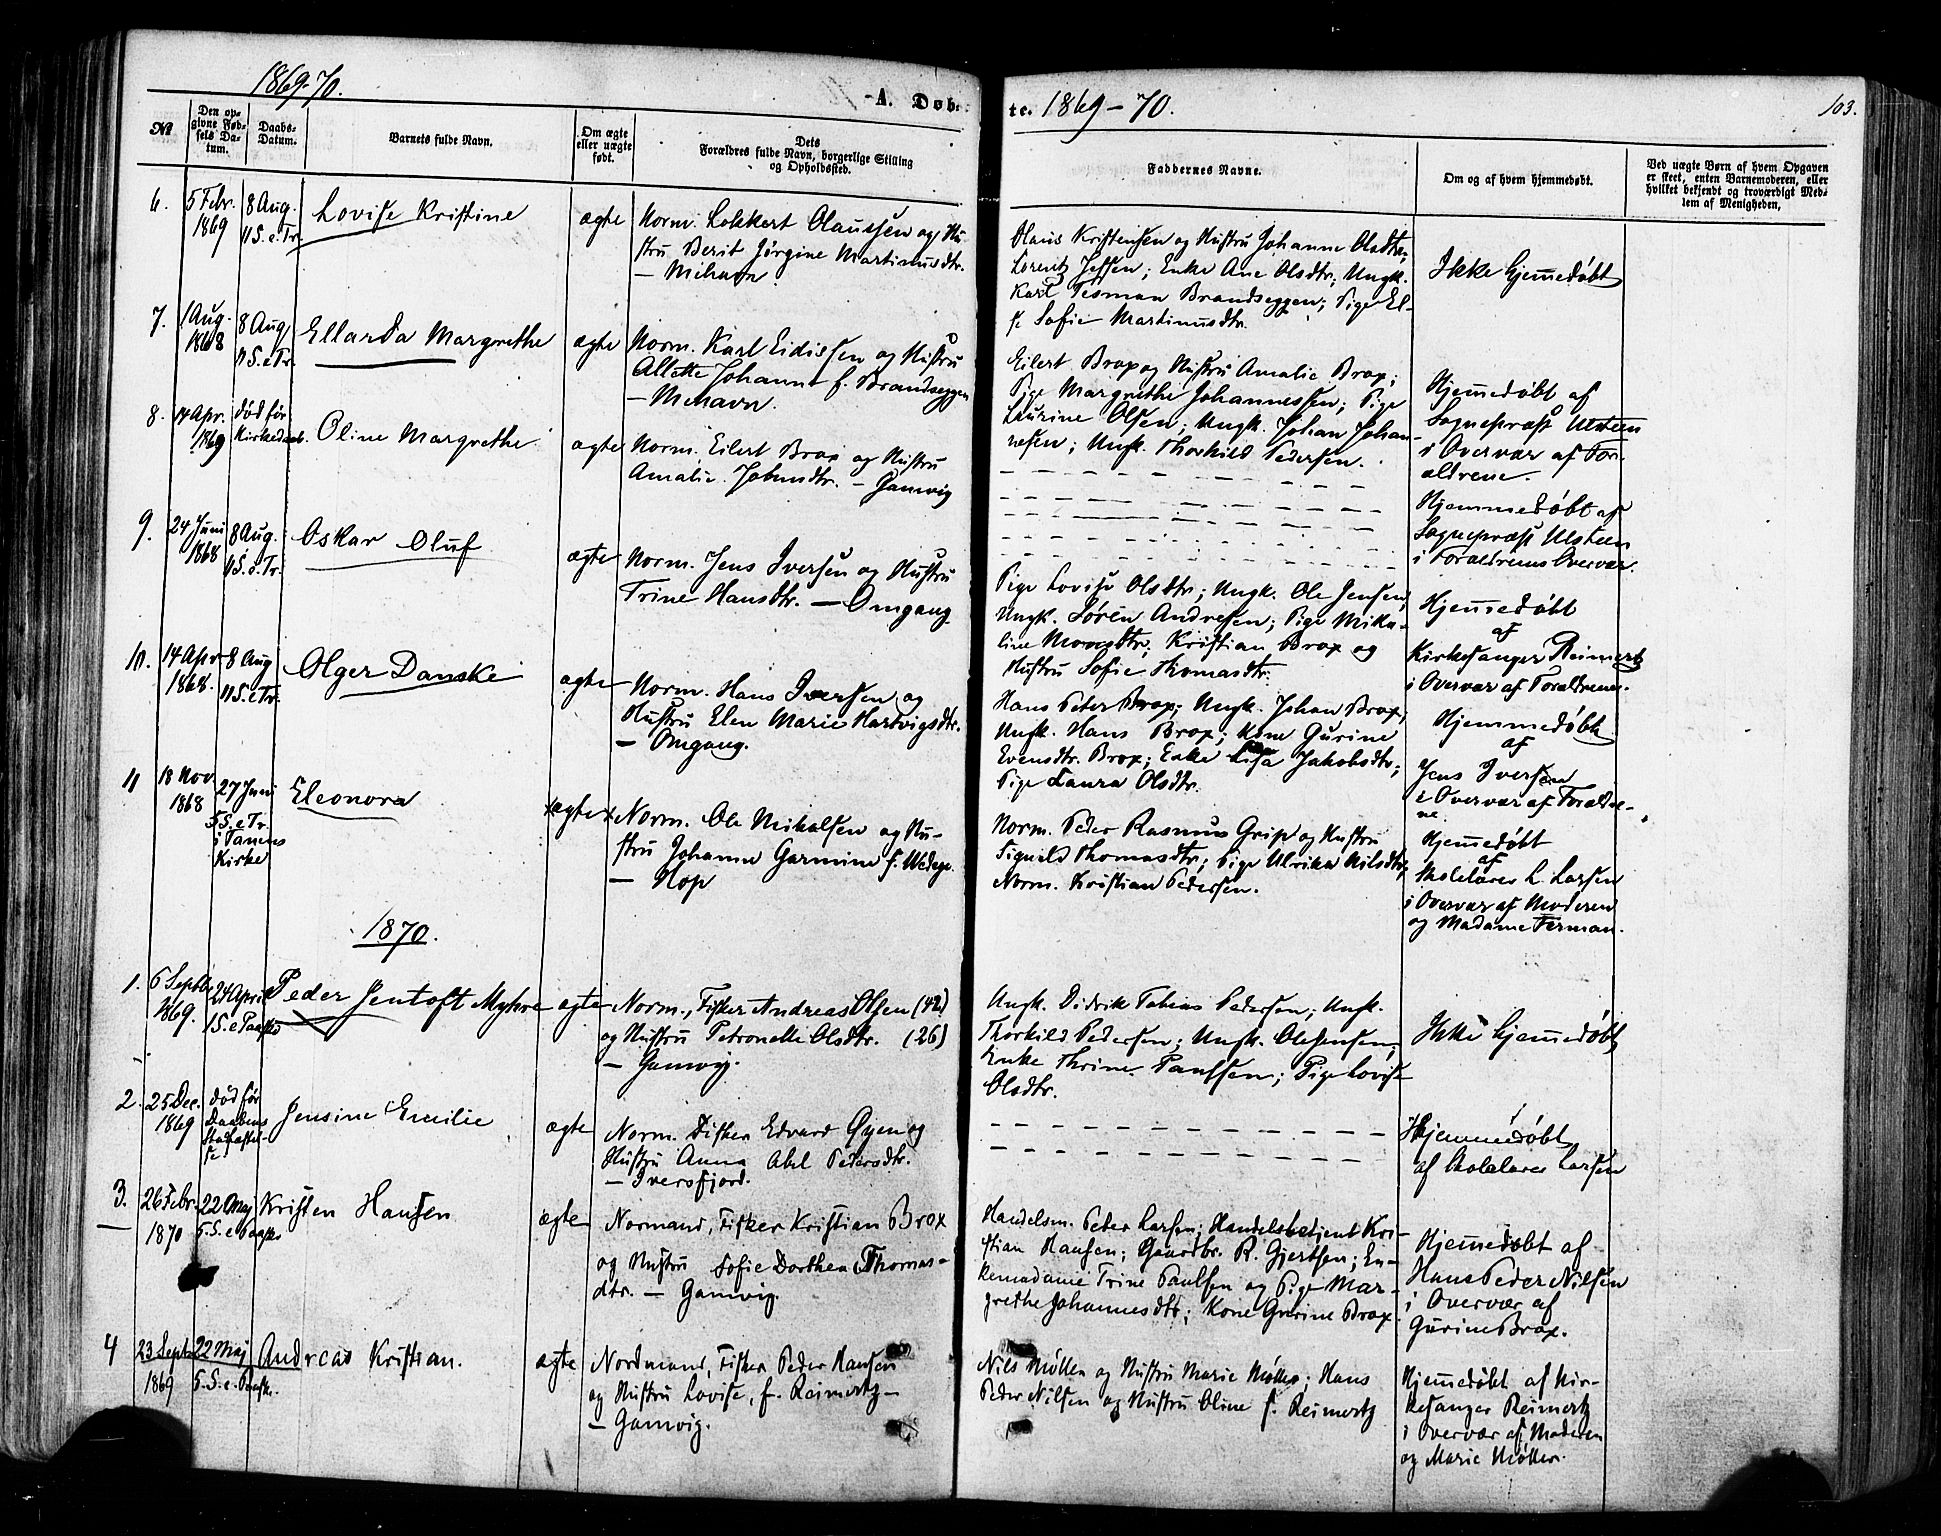 1869-70.
A. Døb-
te. 1869-70.
103.
№
Den op-
givne Fød-
sels Da-
tum.
Daabs-
Datum.
Barnets fulde Navn.
Om ægte
eller uægte
født.
Dets
Forældres fulde Navn, borgerlige Stilling
og Opholdssted.
Faddernes Navne.
Om og af hvem hjemmedøbt.
Ved uægte Børn af hvem Opgaven
er skeet, enten Barnemoderen, eller
hvilket bekjendt og troværdigt Med-
lem af Menigheden.
6.
5 Febr.
1869
8 Aug.
11 S. e. Tr.
Lovise Kristine
ægte
Norm. Lokkert Olaussen og Hu-
stru Berit Jørgine Martinusdtr.
— Mehavn.
Hans Kristensen og Hustru Johanne Olsdtr.;
Lorentz Jessen; Enke Ane Olsdtr; Ungk.
Karl Tesman Brandseggen; Pige El-
se Sofie Martinusdtr.
Ikke hjemmedøbt
7.
1 Aug.
1868
8 Aug
11 S. e Tr.
Ellarda Margrethe
ægte
Norm. Karl Eidissen og Hustru
Allette Johanna f. Brandseggen
— Mehavn.
Eilert Brox og Hustru Amalie Brox;
Pige Margrethe Johannessen; Pige
Laurine Olsen; Ungk. Johan Johan-
nesen; Ungk. Thorkild Pedersen.
Hjemmedøbt af
Sognepræst Ulsteen
i Overvær af For-
ældrene.
8.
14 Apr.
1869
død før
Kirkedaab.
Oline Margrethe.
ægte
Norm. Eilert Brox og Hustru
Amalie Johansdtr. — Gamvig
Hjemmedøbt af
Sognepræst Ulsteen
i Forældrenes Overvær.
9.
24 Juni
1868
8 Aug.
11 S. e. Tr.
Oskar Oluf
ægte
Norm. Jens Iversen og Hustru
Trine Hansdtr. — Omgang
Pige Lovise Olsdtr; Ungk. Ole Jensen;
Ungk. Søren Andresen; Pige Mika-
line Monsdtr; Kristian Brox og
Hustru Sofie Thomasdtr.
Hjemmedøbt
af
Kirkesanger Reimertz
i Overvær af Forældrene.
10.
14 Apr.
1868.
8 Aug
11 S. e Tr.
Olger Danske
ægte
Norm. Hans Iversen og
Hustru Elen Marie Hartvigsdtr.
— Omgang.
Hans Peter Brox; Ungk. Johan Brox;
Ungk. Hans Brox; Kone Gurine
Evensdtr. Brox; Enke Lisa Jakobsdtr;
Pige Laura Olsdtr.
Hjemmedøbt
af
Jens Iversen
i Overvær af Forældre-
ne.
11
18 Nov.
1868
27 Juni
5 S. e Tr.
i Tanens
Kirke
Eleonora
ægte
Norm. Ole Mikalsen og Hu-
stru Johanne Garmine f. Wedege
— Hop
Norm. Peder Rasmus Grip og Hustru
Signild Thomasdtr; Pige Ulrika Nilsdtr;
Norm. Kristian Pedersen.
Hjemmedøbt
af
Skolelærer L. Larsen
i Overvær af Moderen
og Madame Ferman.
1870.
1.
6 Septbr.
1869.
24 April
1 S. e Paaske
Peder Jentoft Myhre
ægte
Norm., Fisker Andreas Olsen (42)
og Hustru Petronelle Olsdtr. (26)
— Gamvig.
Ungk. Didrik Tobias Pedersen; Ungk.
Thorkild Pedersen; Ungk. Ole Jensen;
Enke Thrine Paulsen; Pige Lovise
Olsdtr.
Ikke hjemmedøbt
2.
25 Dec.
1869
død før
Daabens
Stadfæstel-
se.
Jensine Emilie
ægte
Norm. Fisker Edvard Øyen og
Hustru Anna Abel Pedersdtr.
— Iversfjord.
Hjemmedøbt
af Skolelærer Larsen
3.
26 Febr.
1870
22 Maj
5. S. e Paaske
Kristen Hansen
ægte
Normand, Fisker Kristian Brox
og Hustru Sofie Dorthea Thomas-
dtr. — Gamvig.
Handelsm. Peter Larsen; Handelsbetjent Kri-
stian Hansen; Gaardbr. R. Gjertsen; En-
kemadame Trine Paulsen og Pige Mar-
grethe Johannesdtr; Kone Gurine Brox.
Hjemmedøbt af
Hans Peder Nilsen
i Overvær af
Gurine Brox.
4
23 Sept.
1869
22 Maj
5. S. e. Paaske.
Andreas Kristian.
ægte
Nordmand, Fisker Peder Hansen
og Hustru Lovise, f. Reimertz—
— Gamvig.
Nils Møller og Hustru Marie Møller; Hans
Peder Nilsen og Hustru Oline f. Reimertz
Hjemmedøbt af Kir-
kesanger Reimertz
i Overvær af Moderen
og Marie Møller.